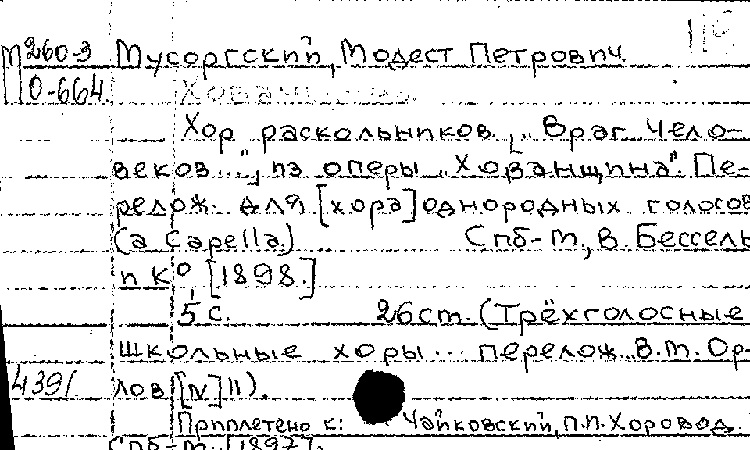 М260-3 Мусоргский, Модест Петрович.
О-664. Хованщина.
Хор раскольников „Враг чело-
веков...", из оперы „Хованщина". Пе-
релож. для [хора] однородных голосов
(a capella) Спб-М, В. Бессель
и К⁰, [1898.]
5 с. 26 cm. (Трёхголосные
школьные хоры... перелож. В.М. Ор-
4391 лов [N] 11).
Приплетено к: Чайковский, П.И. Хоровод.
Спб-М. [1897].